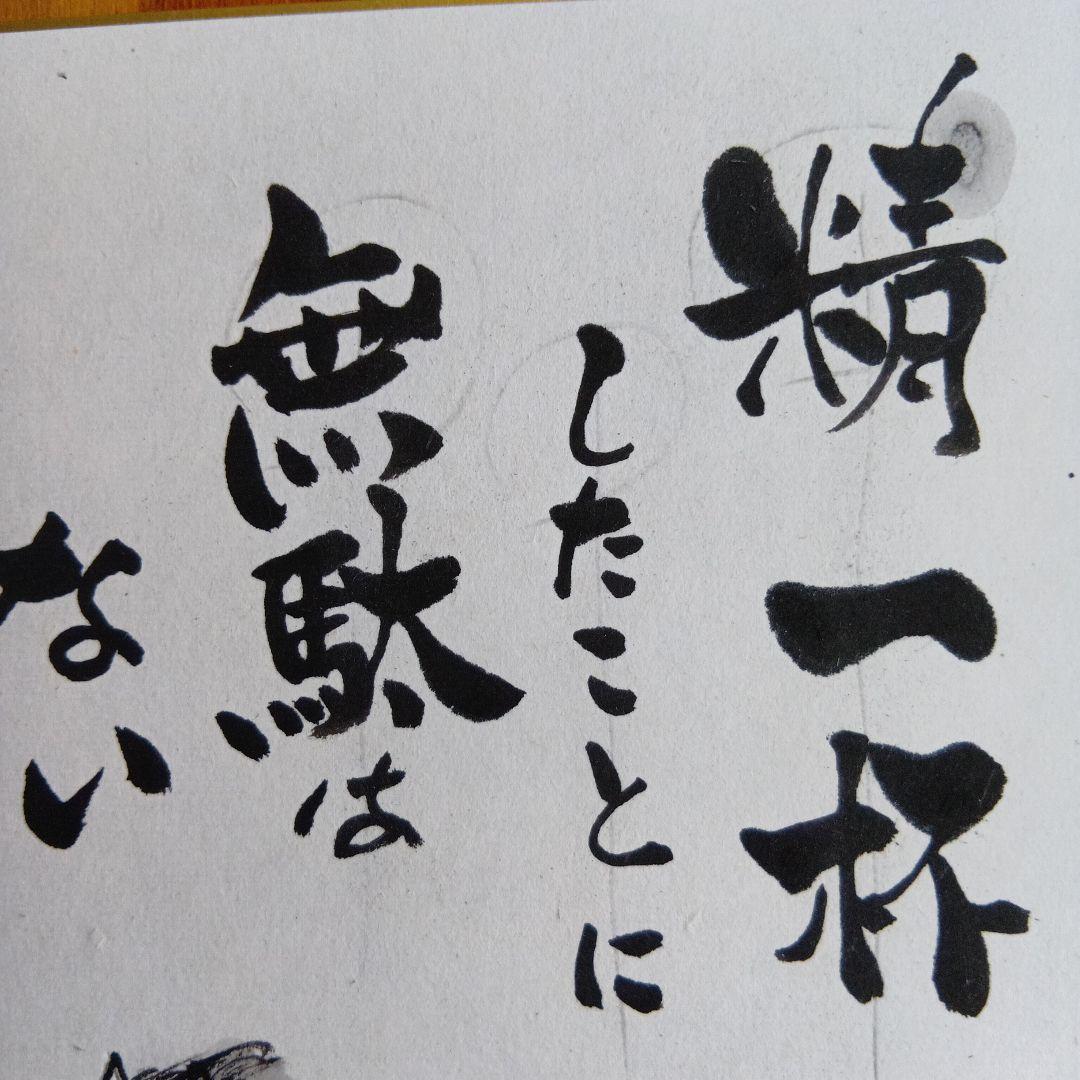 精一杯
したことに
無駄は
ない